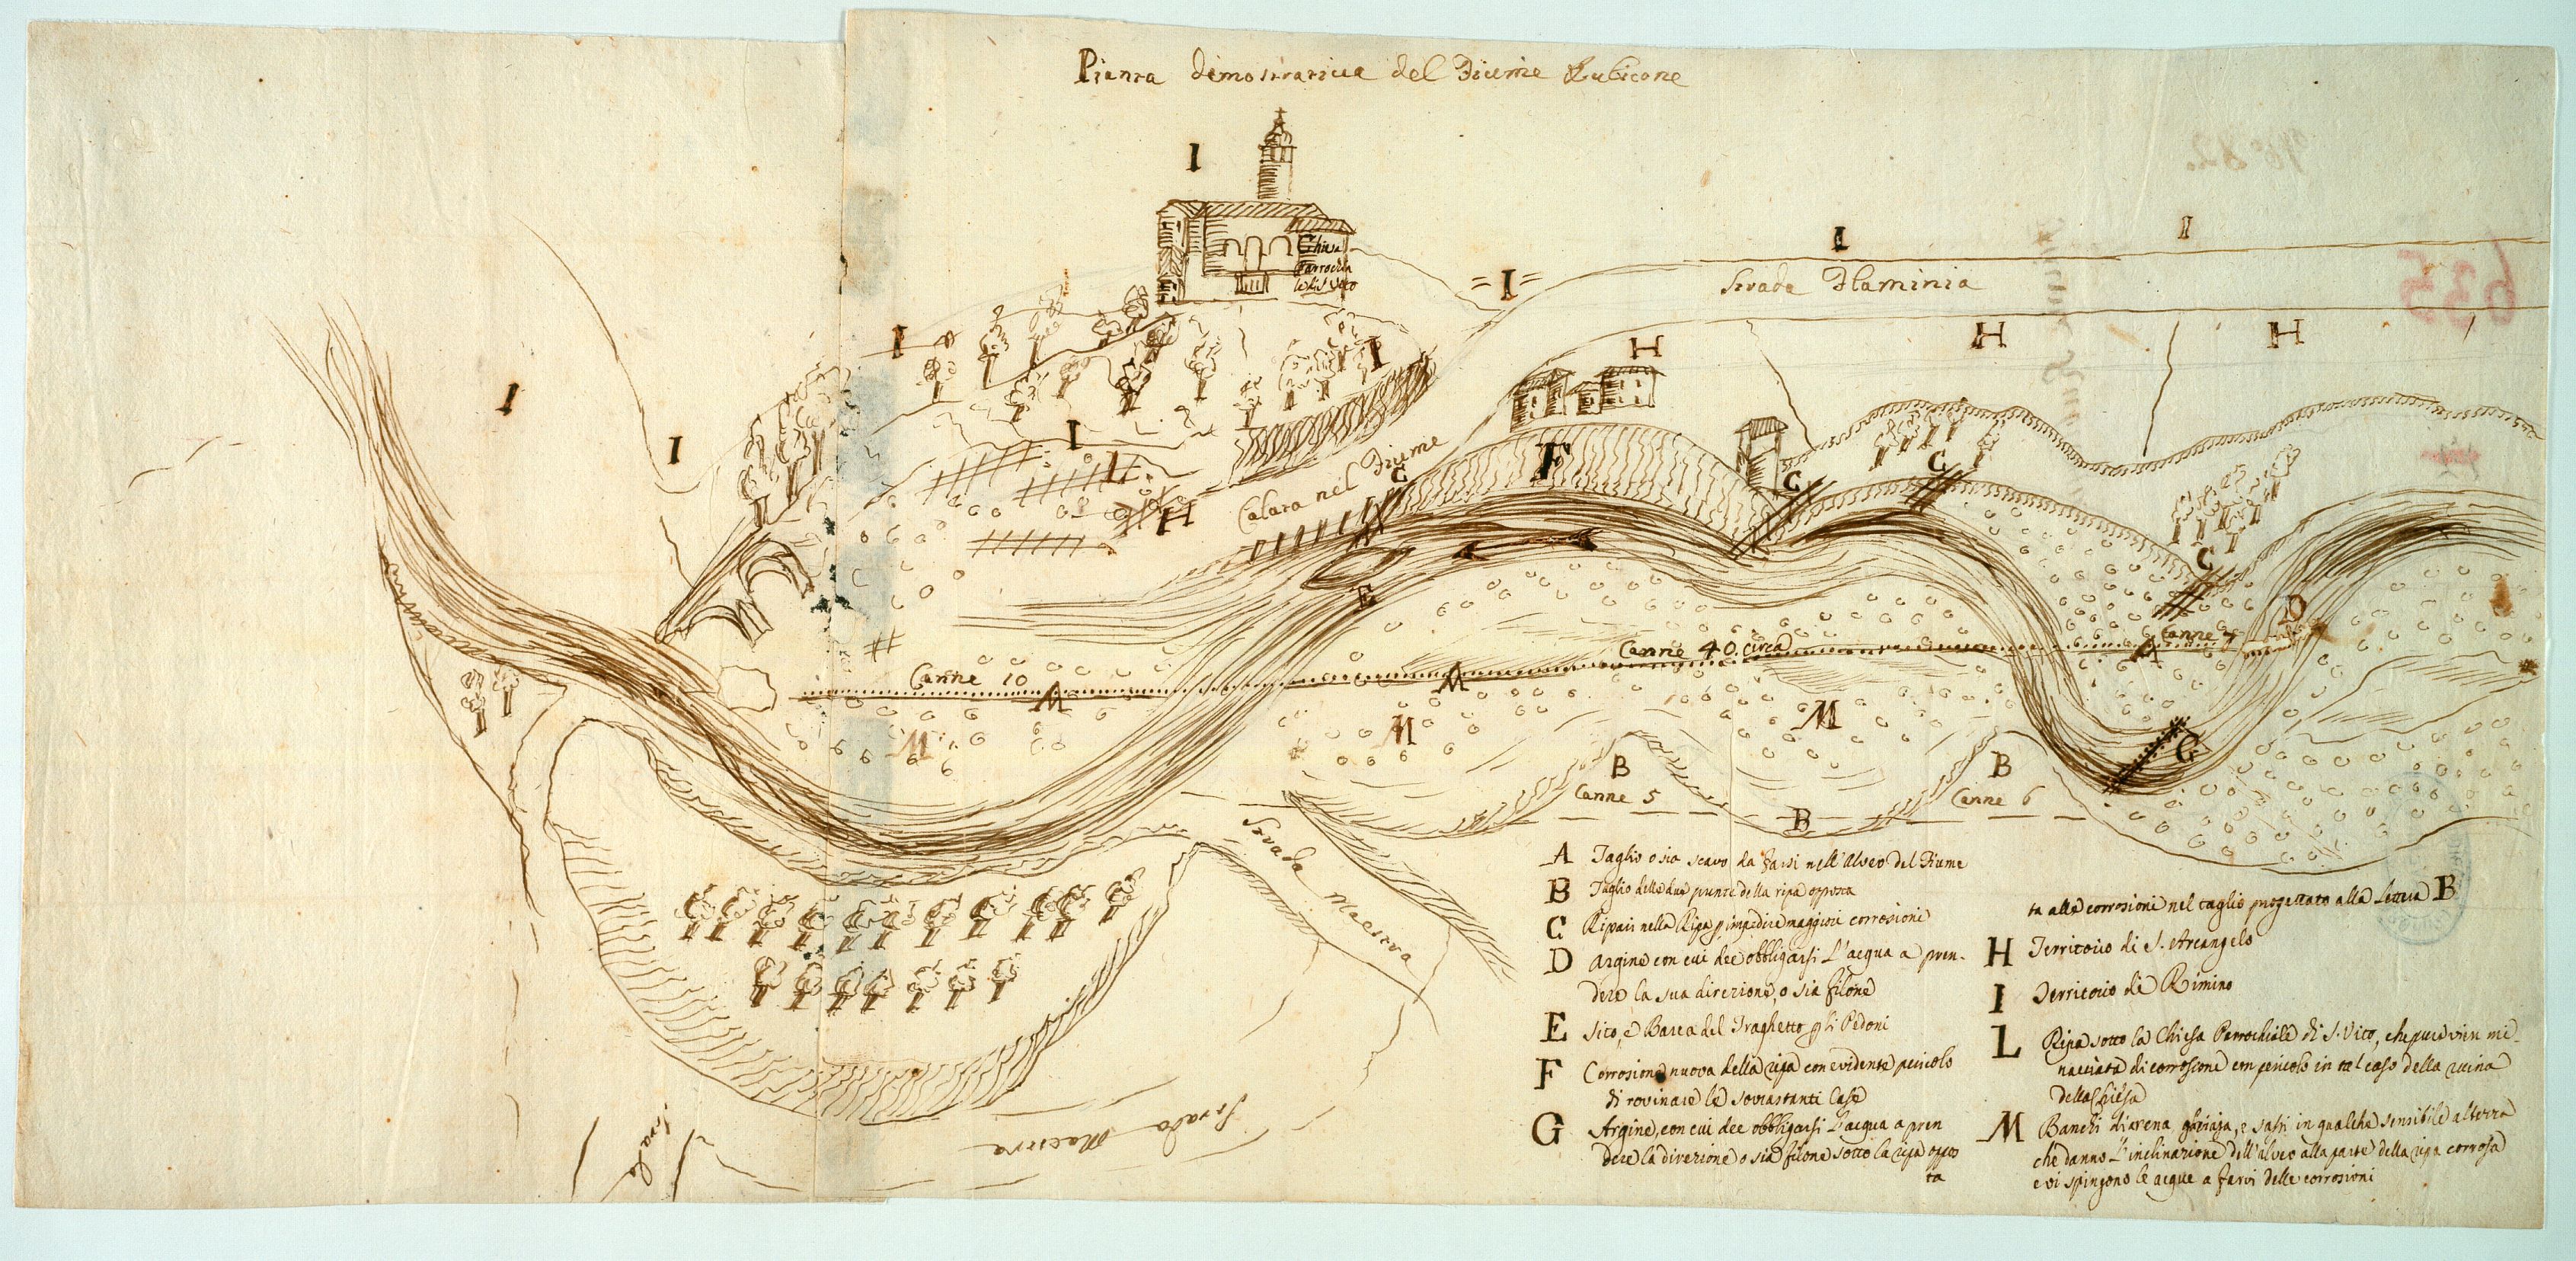 Pianta dimostrativa del Fiume Rubicone
I
Chiesa
Parrochia
le di S. Vito
I
I
= I =
Strada Flaminia
635
I
I
H
H
H
I
I
I
I
L
H
Calata nel Fiume
C
F
C
C
C
E
D
Canne 10
M
M
Canne 40. circa
M
M
M
A
Canne
G
B
Canne 5
B
B
Canne 6
Strada Maestra
Strada Maestra
Strada
A Taglio o sia scavo da farsi nell'Alveo del Fiume
B Taglio delle due punte della ripa opposta
C Ripari nella Ripa p impedire maggiori corrosioni
D Argine con cui dee obbligarsi L'acqua a pren-
dere la sua direzione, o sia filone
E Sito, e Barca del Traghetto p gli Pedoni
F Corrosione nuova della ripa con evidente pericolo
di rovinare le sovrastanti Case
G Argine, con cui dee obbligarsi L'acqua a pren
dere la direzione o sia filone sotto la ripa oppos
ta
ta alle corrosioni nel taglio progettato alla Lettera B
H Territorio di S. Arcangelo
I Territorio di Rimino
L Ripa sotto la Chiesa Parrochiale di S. Vito, che pure vien mi-
nacciata di corrosione con pericolo in tal caso della ruina
della Chiesa
M Banchi di arena, ghiaja, e sassi in qualche sensibile altezza
che danno L'inclinazione dell'alveo alla parte della ripa corrosa
e vi spingono le acque a farvi delle corrosioni